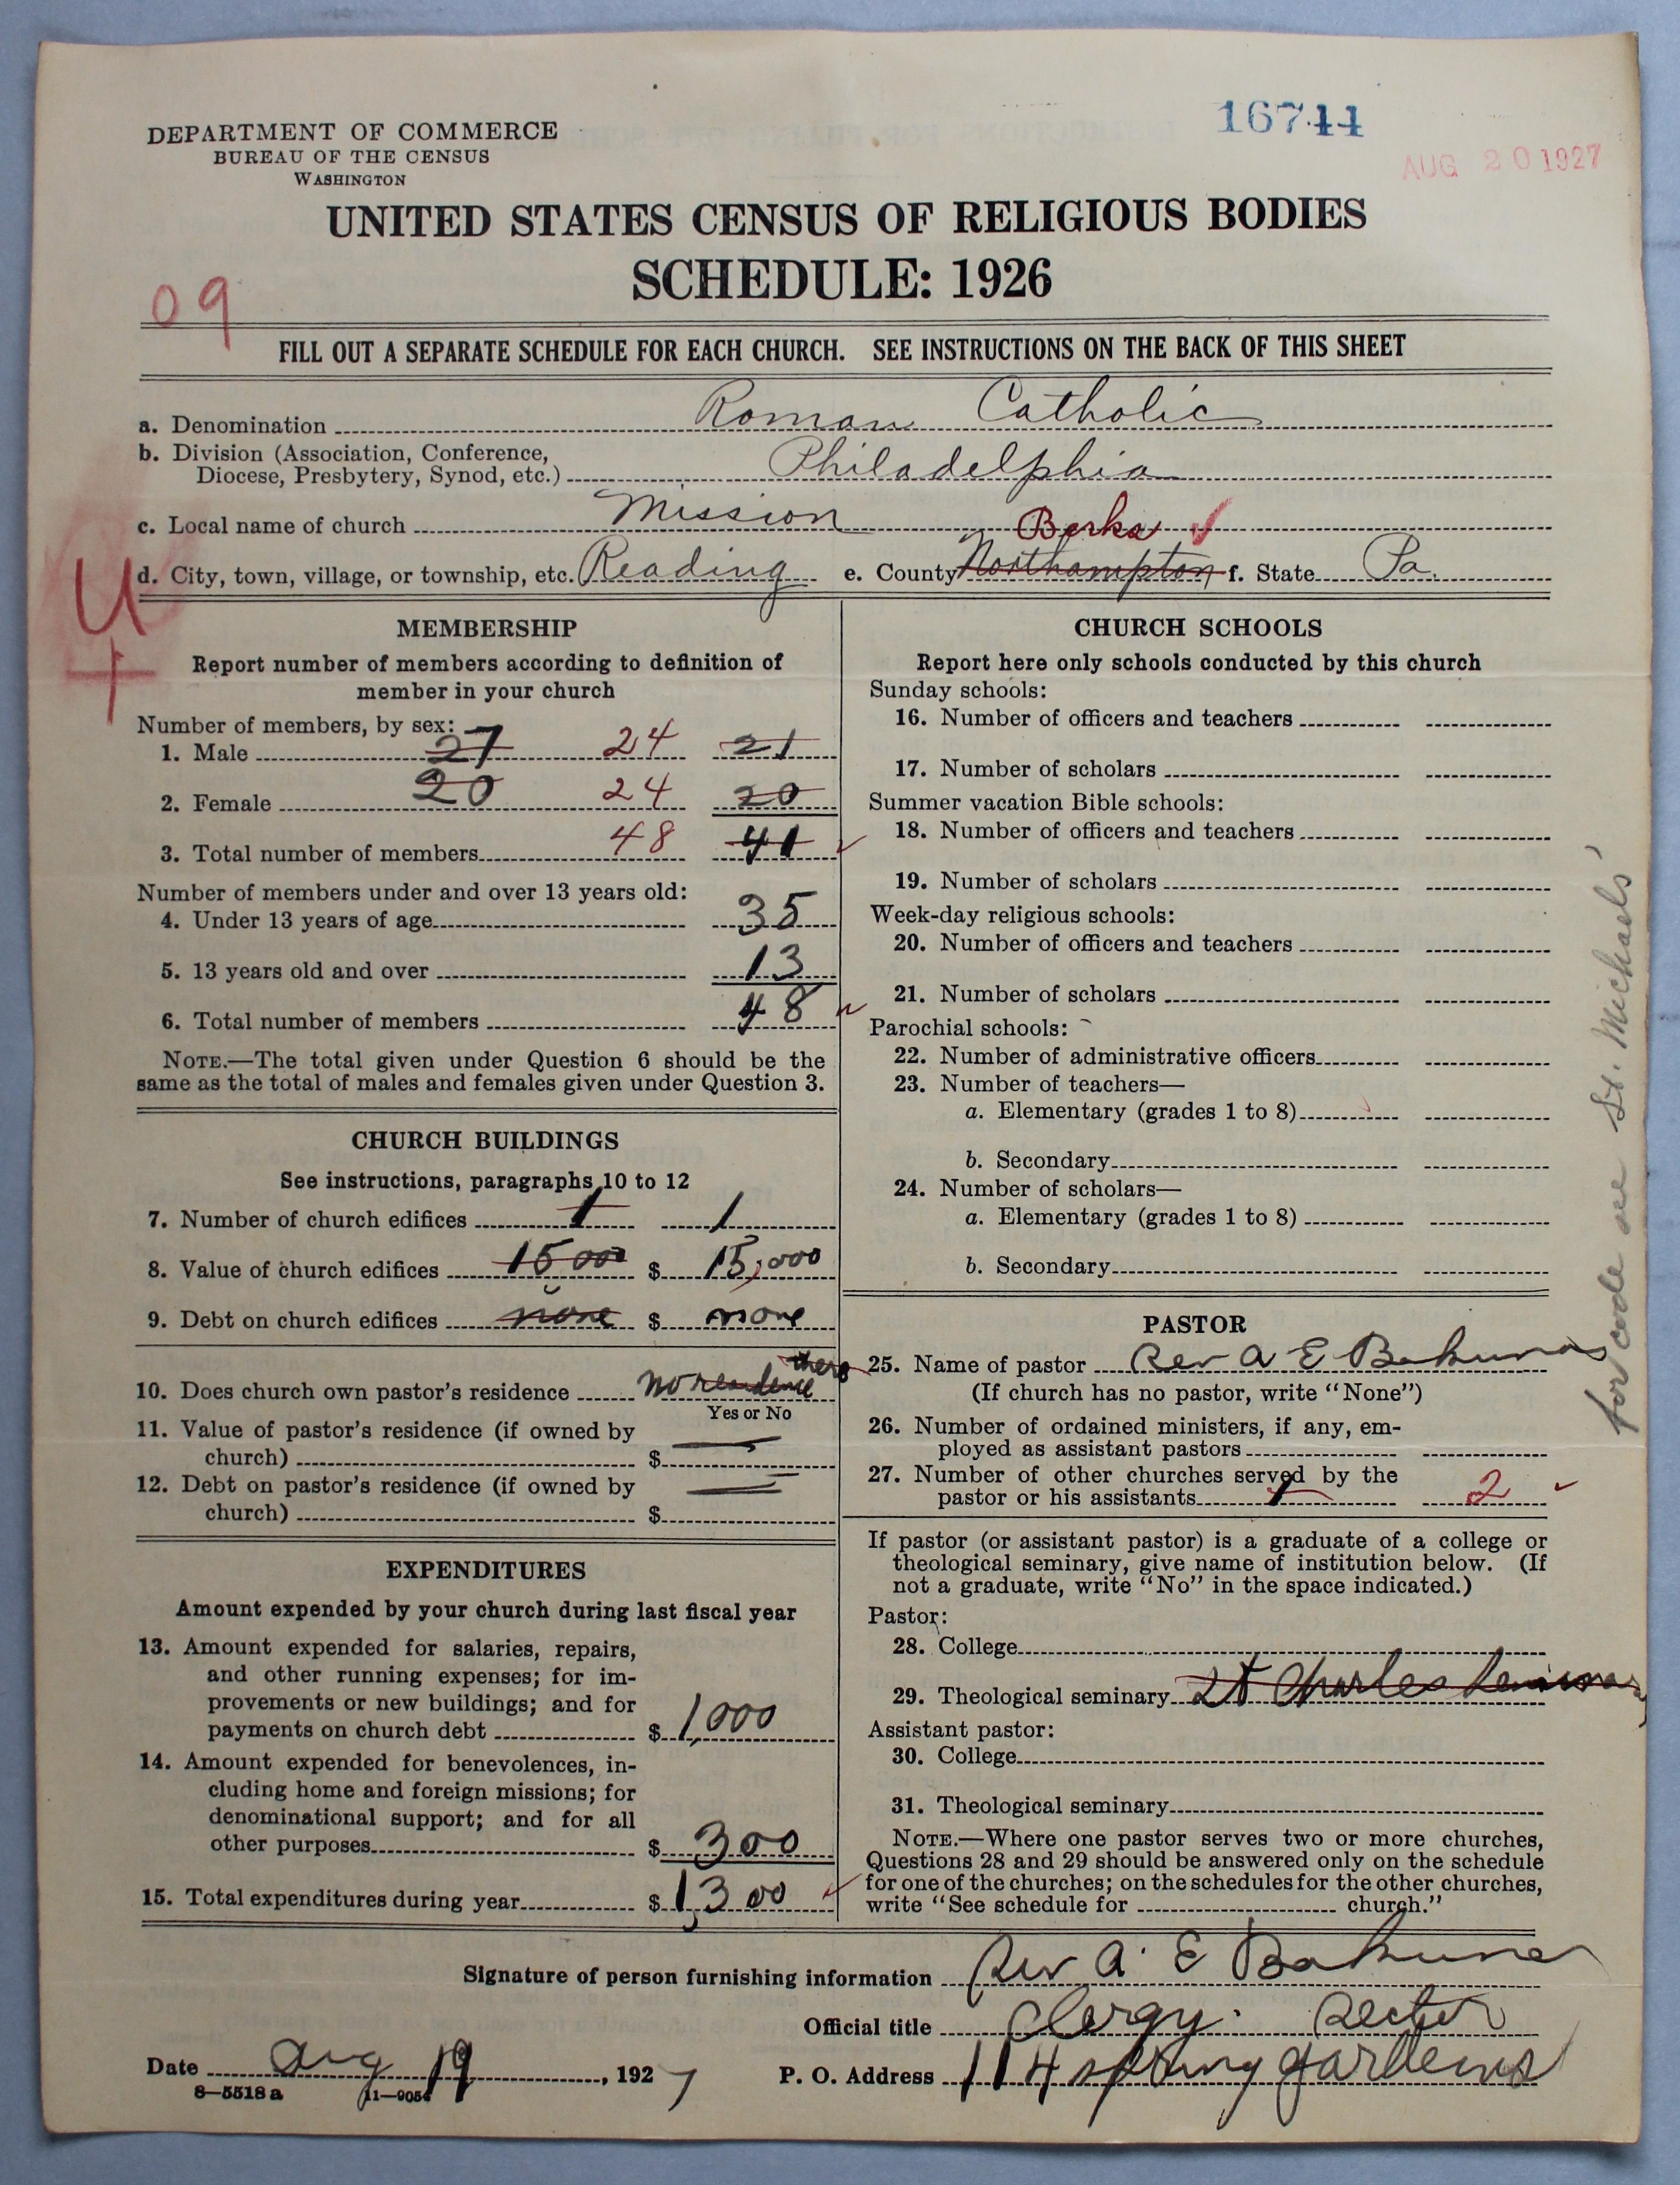 16744
AUG 20 1927
DEPARTMENT OF COMMERCE
BUREAU OF THE CENSUS
WASHINGTON
UNITED STATES CENSUS OF RELIGIOUS BODIES
SCHEDULE: 1926
09
FILL OUT A SEPARATE SCHEDULE FOR EACH CHURCH. SEE INSTRUCTIONS ON THE BACK OF THIS SHEET
a. Denomination Roman Catholic
b. Division (Association, Conference,
Diocese, Presbytery, Synod, etc.) Philadelphia
c. Local name of church Mission
Berks
d. City, town, village, or township, etc. Reading e. County Northampton f. State Pa.
U
MEMBERSHIP
Report number of members according to definition of
member in your church
Number of members, by sex:
1. Male 27 24 21
2. Female 20 24 20
3. Total number of members 48 41
Number of members under and over 13 years old:
4. Under 13 years of age 35
5. 13 years old and over 13
6. Total number of members 48
NOTE.—The total given under Question 6 should be the
same as the total of males and females given under Question 3.
CHURCH BUILDINGS
See instructions, paragraphs 10 to 12
7. Number of church edifices 1 1
8. Value of church edifices 15000 $ 15,000
9. Debt on church edifices none $ none
10. Does church own pastor's residence no residence there
Yes or No
11. Value of pastor's residence (if owned by
church) $
12. Debt on pastor's residence (if owned by
church) $
EXPENDITURES
Amount expended by your church during last fiscal year
13. Amount expended for salaries, repairs,
and other running expenses; for im-
provements or new buildings; and for
payments on church debt $ 1,000
14. Amount expended for benevolences, in-
cluding home and foreign missions; for
denominational support; and for all
other purposes $ 300
15. Total expenditures during year $ 1,300
CHURCH SCHOOLS
Report here only schools conducted by this church
Sunday schools:
16. Number of officers and teachers
17. Number of scholars
Summer vacation Bible schools:
18. Number of officers and teachers
19. Number of scholars
Week-day religious schools:
20. Number of officers and teachers
21. Number of scholars
Parochial schools:
22. Number of administrative officers
23. Number of teachers—
a. Elementary (grades 1 to 8)
b. Secondary
24. Number of scholars—
a. Elementary (grades 1 to 8)
b. Secondary
PASTOR
25. Name of pastor Rev A E
(If church has no pastor, write "None")
26. Number of ordained ministers, if any, em-
ployed as assistant pastors
27. Number of other churches served by the
pastor or his assistants 1 2
If pastor (or assistant pastor) is a graduate of a college or
theological seminary, give name of institution below. (If
not a graduate, write "No" in the space indicated.)
Pastor:
28. College
29. Theological seminary St Charles Seminary
Assistant pastor:
30. College
31. Theological seminary
NOTE.—Where one pastor serves two or more churches,
Questions 28 and 29 should be answered only on the schedule
for one of the churches; on the schedules for the other churches,
write "See schedule for church."
for code see St. Michaels'
Signature of person furnishing information Rev A. E
Official title Clergy. Rector
Date Aug 19, 1927 P. O. Address 114 spring gardens
8—5518 a 11—9054